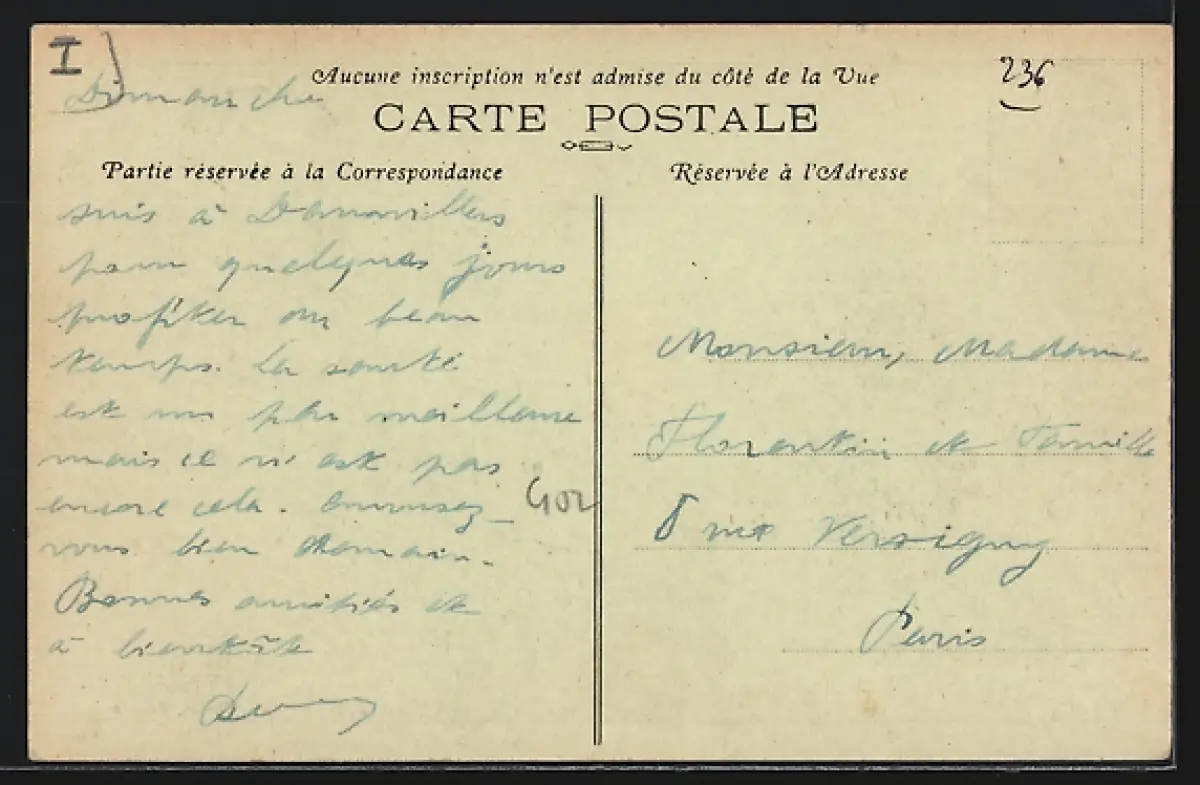 I
236
Dimanche
Aucune inscription n'est admise du côté de la Vue
CARTE POSTALE
Partie réservée à la Correspondance
Réservée à l'Adresse
suis à
pour quelques jours
profiter du beau
temps. La santé
est un peu meilleure
mais ce n'est pas
encore cela. amusez-
vous bien demain.
Bonnes amitiés et
à bientôt
Gor
Monsieur, Madame
Florentin et Famille
8 rue Versigny
Paris